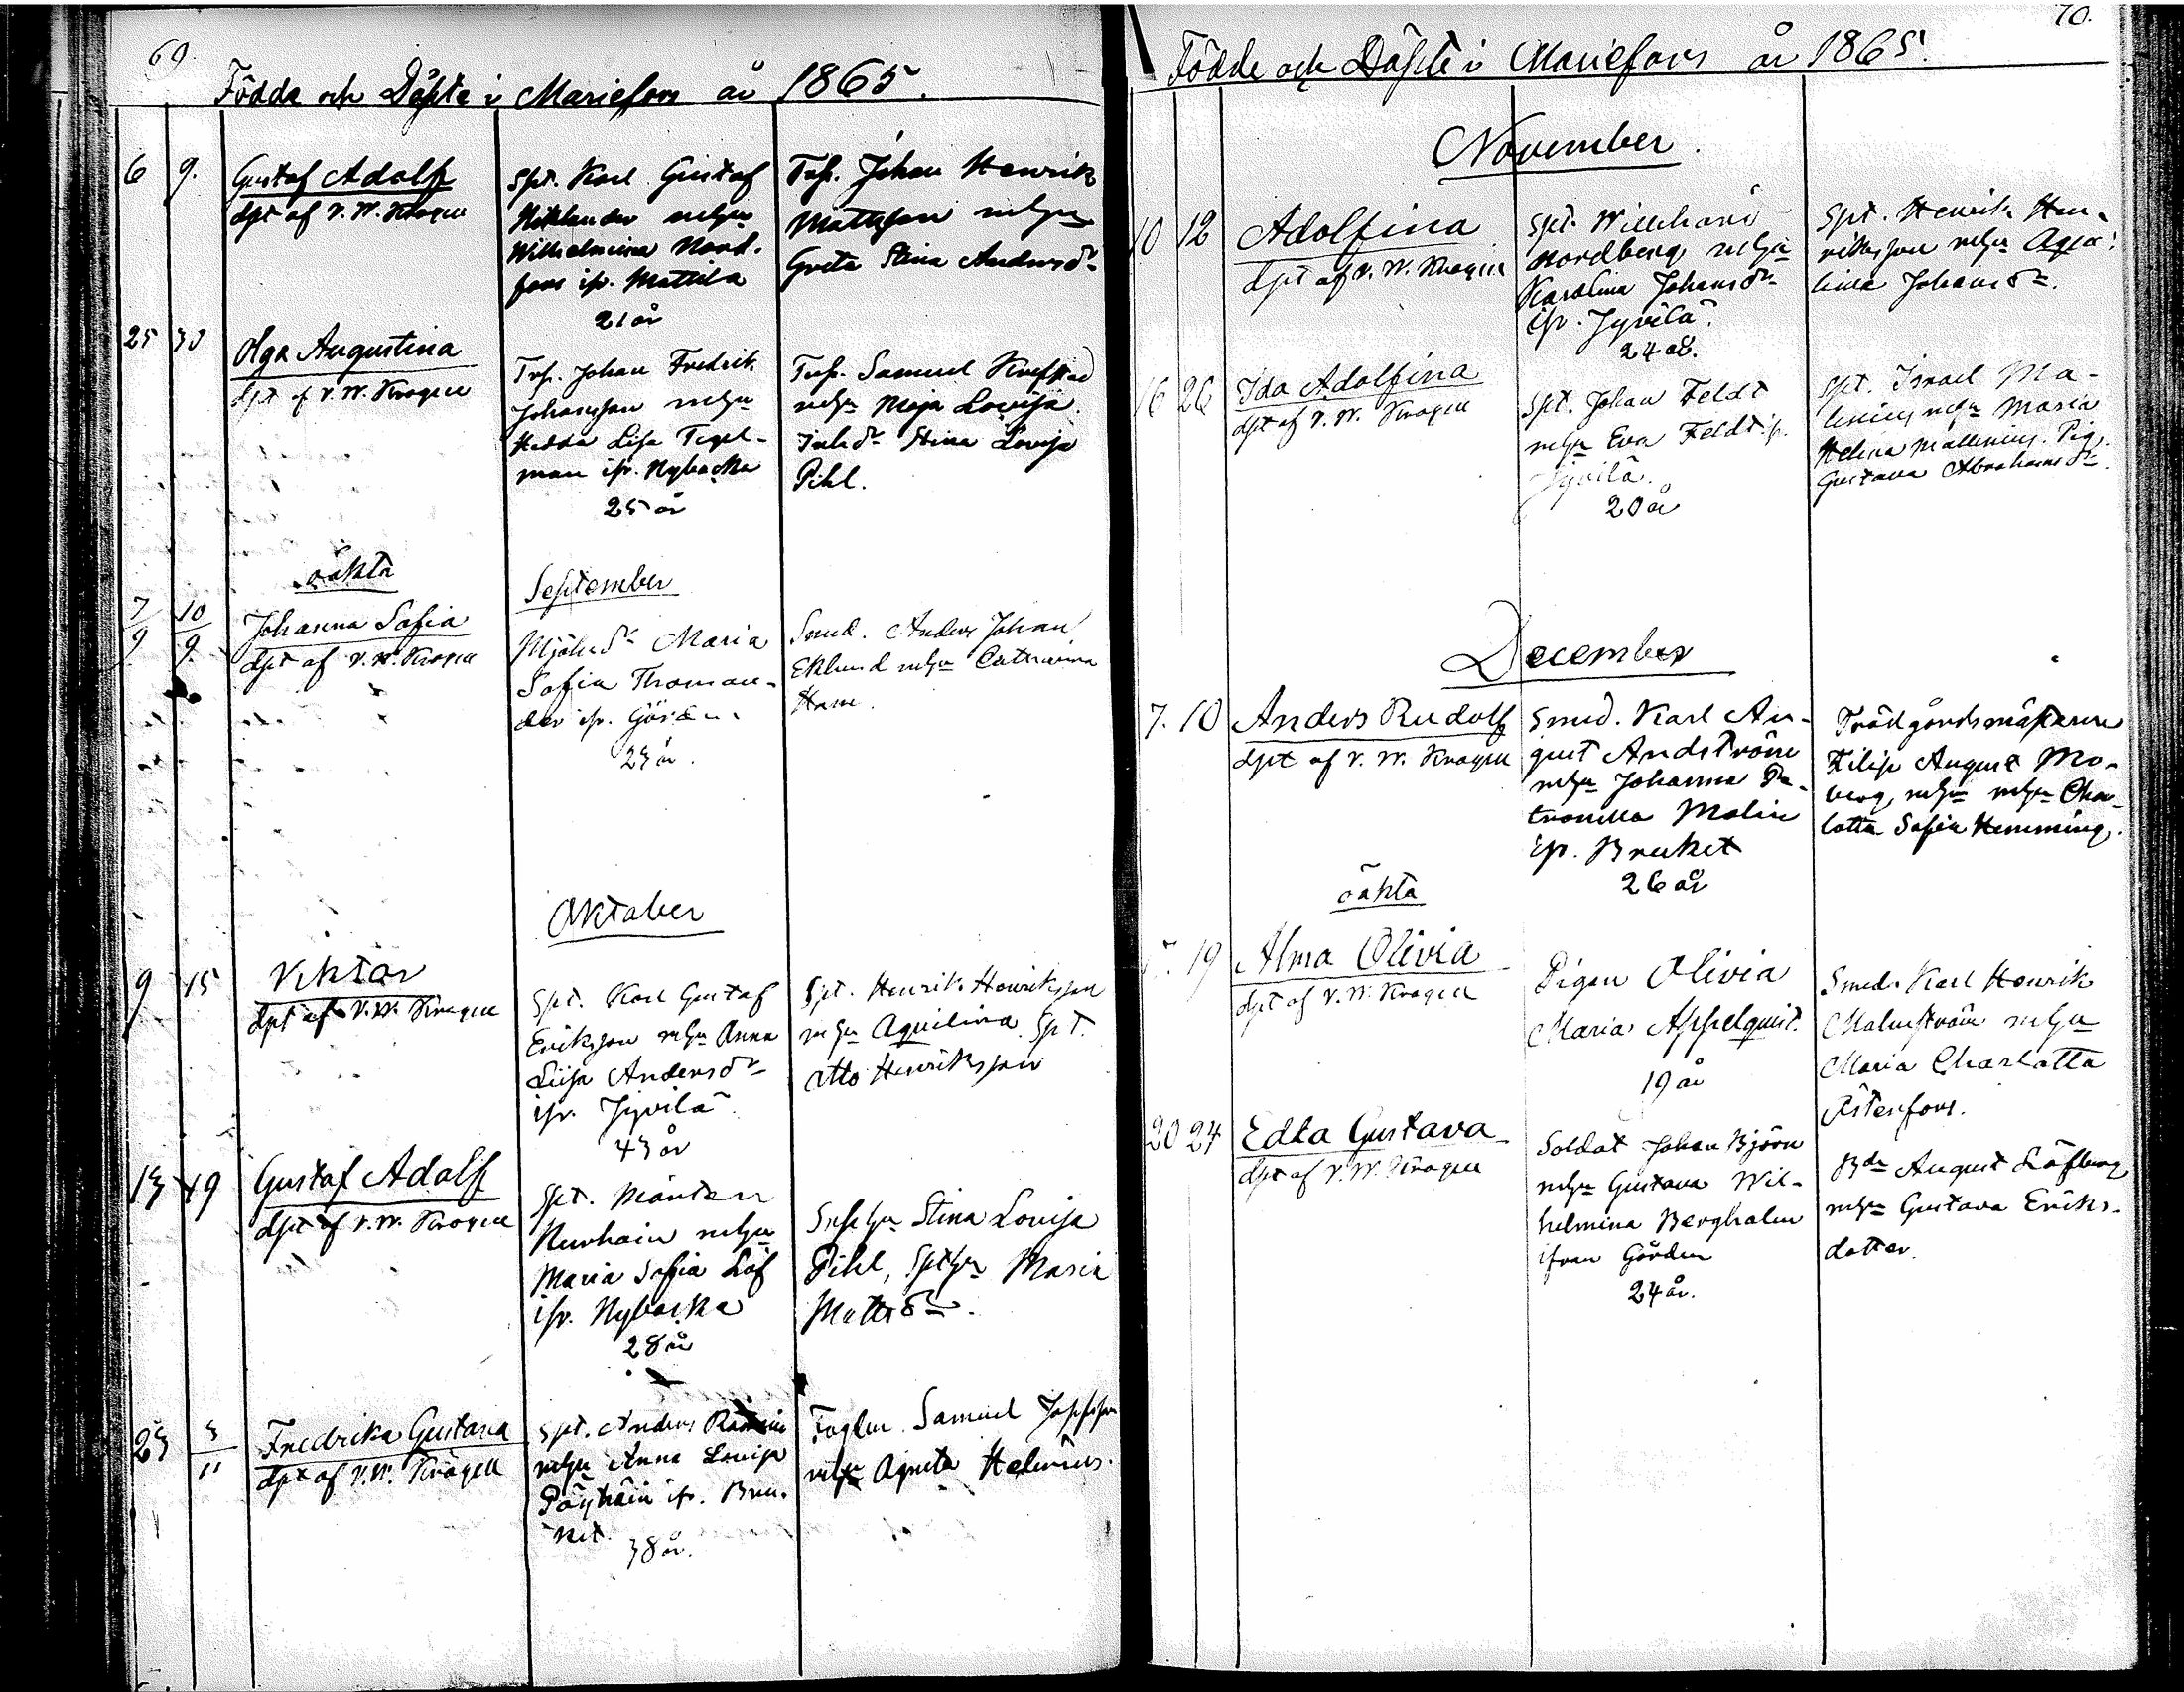 69.
Födda och Döpta i Mariefors år 1865.
6 9. Gustaf Adolf
dpt af V. W. Krogell
Spt. Karl Gustaf
Wilhelmina Nord-
fors ifr. Mattila
21 år
Trp. Johan Henrik
Mattsson
Greta Stina Andersdr
25 30 Olga Augustina
dpt af V. W. Krogell
Trp. Johan Fredrik
Johansson
Hedda Lisa Tegel-
man ifr. Nybacka
25 år
Samuel
Maja Lovisa
Stina Lovisa
Pihl.
oäkta
September
7/9 10/9 Johanna Sofia
dpt af V. W. Krogell
Mjölndr Maria
Sofia Thoman-
der ifr. Gården.
23 år.
Smed. Anders Johan
Eklund Cathrina
Oktober
9 15 Viktor
dpt af V. W. Krogell
Spt. Karl Gustaf
Eriksson Anna
Lisa Andersdr
ifr. Jyvilä
43 år
Spt. Henrik Henriksson
Aquilina. Spt.
Otto Henriksson
13 19 Gustaf Adolf
dpt af V. W. Krogell
Spt. Mårten
Maria Sofia Löf
ifr. Nybacka
28 år
Stina Lovisa
Pihl, Maria
Mattsdr.
23 5/11 Fredrika Gustava
dpt af V. W. Krogell
Spt. Anders
Anna Lovisa
ifr. Bru-
ket.
38 år.
Samuel Josefsson
Agneta Helenius.
70.
Födde och Döpte i Mariefors år 1865.
November.
10 12 Adolfina
dpt af V. W. Krogell
Spt. Willehard
Nordberg
Karolina Johansdr
ifr. Jyvilä.
24 år.
Spt. Henrik Hen-
riksson Aqvi-
lina Johansdr.
16 26 Ida Adolfina
dpt af V. W. Krogell
Spt. Johan Feldt
Eva Feldt if.
Jyvilä.
20 år
Spt. Israel Ma-
lenius Maria
Helena Malenius. Pig.
Gustava Abrahamsdr.
December
7. 10 Anders Rudolf
dpt af V. W. Krogell
Smed. Karl Au-
gust Andström
Johanna Pe-
tronella Malin
ifr. Bruket
26 år
Trädgårdsmästaren
Filip August Mo-
berg Char-
lotta Sofia Hemming.
oäkta
19 Alma Olivia
dpt af V. W. Krogell
Pigan Olivia
Maria Appelquist.
19 år
Smed. Karl Henrik
Malmström
Maria Charlotta
Östenfors.
20 24 Edla Gustava
dpt af V. W. Krogell
Soldat Johan Björn
Gustava Wil-
helmina Bergholm
ifran Gården
24 år.
Bdn August Löfberg
Gustava Eriks-
dotter.